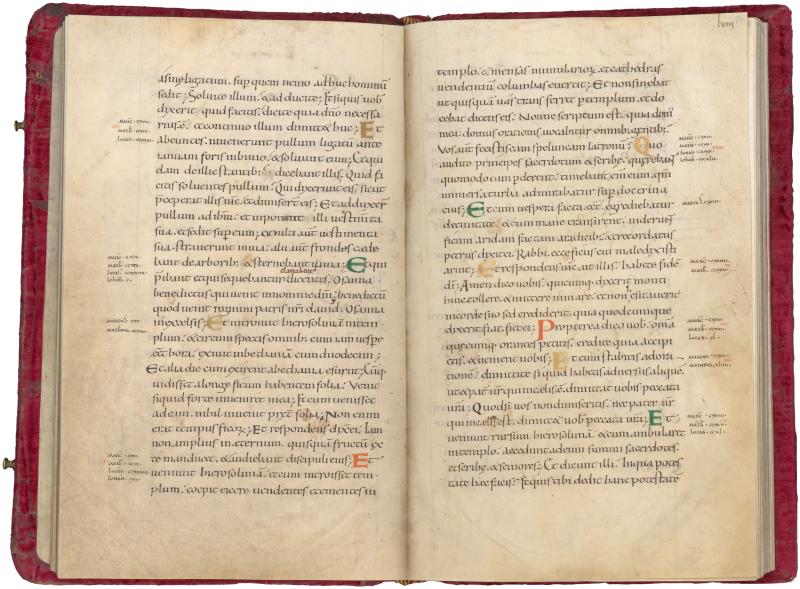 asinę ligatum. sup quem nemo adhuc hominum
sedit; Soluite illum. & adducite; Et siquis uob
dixerit. quid facitis; dicite quia dno necessa
riusē. et continuo illum dimittet huc; Et
abeuntes. inuenerunt pullum ligatū ante
ianuam foris inbiuio. & soluunt eum; Et qui
dam de illic stantib; dicebant illis. Quid fa
citis soluentes pullum; Qui dixerunt eis sicut
pceperat illis ihc. & dimiserūt eis; Et adduxer
pullum ad ihm. et inponunt illi uestimta
sua. et sedit sup eum; & multi aut uestimenta
sua strauerunt inuia. alii aut frondes cæde
bant de arborib; & sternebant inuia; Et qui
clamabant
pibant et qui sequebantur dicentes. Osanna
benedictus qui uenit innomine dni. benedictū
quod uenit regnum patris nri dauid. Osanna
inexcelsis; Et introiuit hierosolima intem
plum. & circumspectis omnib; cum iam uespe
ra eēt hora. exiuit inbethania cum duodecim;
Et alia die cum exirent abethania esuriit; Cūq
uidisset alonge ficum habentem folia. Venit
siquid forte inueniret inea; Et cum uenisset
ad eam. nihil inuenit pter folia; Non enim
erat tempus ficorū; Et respondens dixit ei. Iam
non amplius inæternum. quisquā fructū ex
te manducet. & audiebant discipuli eius; Et
ueniunt hierosolimā. et cum introisset tem
plum. coepit eicere uendentes et ementes in
viii
templo. & mensas nummulariorū. et cathedras
uendentiū columbas euertit; Et non sinebat
ut quisquā uas transferret p templum. et do
cebat dicens eis. Nonne scriptum est. quia dom
mea. domus orationis uocabitur omnib; gentib;
Vos aut fecistis eam speluncam latronū; Quo
audito principes sacerdotum & scribę. quęrebant
quomodo eum pderent. timebant eni eum. qm
uniuersa turba admirabatur sup doctrina
eius; Et cum uespera facta eēt. egrediebatur
deciuitate. & cum mane transirent. uiderunt
ficum aridam factam aradicib; et recordatus
petrus dixit ei. Rabbi. ecce ficus cui maledixisti
aruit; Et respondens ihc. ait illis. habete fidē
di; Amen dico uobis. quicumq dixerit monti
huic tollere. & mittere inmare. et non esitauerit
incorde suo sed crediderit. quia quodcumque
dixerit fiat. fiet ei; Propterea dico uob. omā
quęcumq orantes petitis. credite quia accipi
etis. & uenient uobis; Et cum stabitis adora
tionē. dimittite si quid habetis aduersus aliquē.
ut & pat ur qui incęlis ē. dimittat uobis peccata
ura; Quod si uos non dimiseritis. nec pater ur
qui incęlis est. dimittet uob peccata ura; Et
ueniunt rursum hierosolimā. & cum ambularet
intemplo. accedunt ad eum summi sacerdotes.
et scribę. & seniores. Et dicunt illi. Inqua potes
tate hæc facis; Et quis tibi dedit hanc potestatē